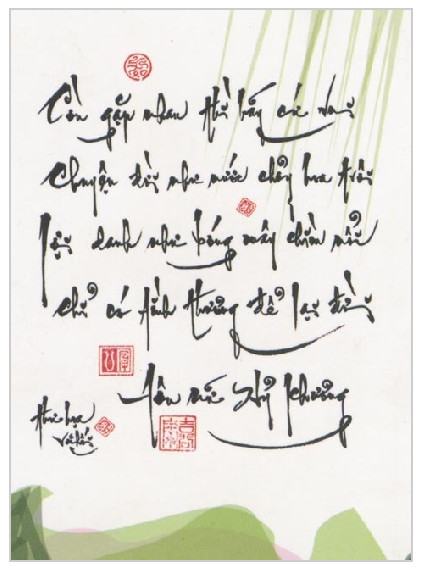 Còn gặp nhau thì hãy cứ vui
Chuyện đời như nước chảy hoa trôi
Lợi danh như bóng mây chìm nổi
Chỉ có tình thương để lại đời
Tôn Nữ Hỷ Khương